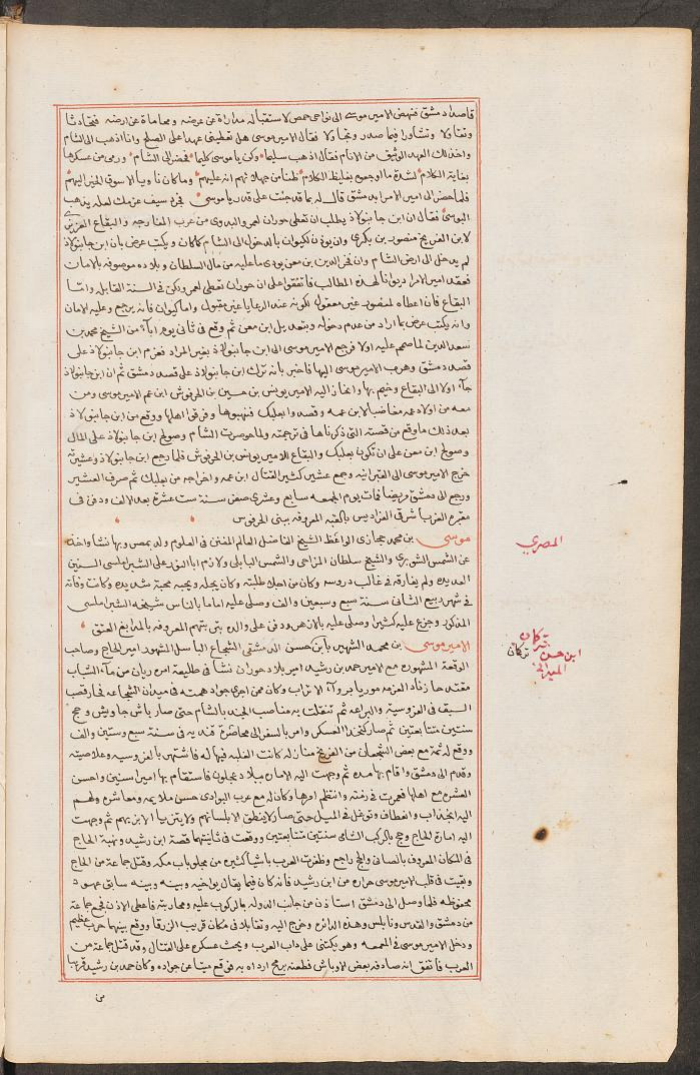 قاصدا دمشق فنهض الامير موسى الى نواحى حمص لاستقباله مداراة عن عرضه ومحاماة عن ارضه فتحادثا
وتقاولا وتشاورا فيما صدر وتجاولا فقال الامير موسى هل تعطينى عهدا على الصلح وانا اذهب الى الشام
واخذ لك العهد الوثيق من الانام فقال اذهب سليما وكن يا موسى كليما فحضر الى الشام ورمى من عسكرها
بغاية الكلام لشدة ما اوجعوه بغليظ الكلام ظنا من جهلائهم انه عليهم وما كان ناويا الا سوق الخير اليهم
فلما حضر الى امير الامراء بدمشق قال له بما قد جئت على قدر يا موسى فجرد سيف عزمك لعله يذهب
البوسى فقال ان ابن جانبولاذ يطلب ان تعطى حوران لعمرو البدوى من عرب المفارجه والبقاع العزيزى
لابن الفريخ منصور بن بكرى وان يؤذن لكيوان بالدخول الى الشام كما كان ويكتب عرض بان ابن جانبولاذ
لم يدخل الى ارض الشام وان فخر الدين بن معن يودى ما عليه من مال السلطان وبلاده موصوفه بالامان
فعقد امير الامراء ديوانا لهذه المطالب فاتفقوا على ان حوران تعطى لعمرو ولكن فى السنة القابله واما
البقاع فان اعطاه لمنصور غير معقول لكونه عند الرعايا غير مقبول واما كيوان فانه يرجع وعليه الامان
وانه يكتب عرض بما اراد من عدم دخوله وبتعديل ابن معن ثم وقع فى ثانى يوم اباء من الشيخ محمد بن
سعد الدين لما صمم عليه اولا فرجع الامير موسى الى ابن جانبولاذ بغير المراد فعزم ابن جانبولاذ على
قصد دمشق وهرب الامير موسى اليها فاخبر بانه ترك ابن جانبولاذ على قصد دمشق ثم ان ابن جانبولاذ
جاء اولا الى البقاع وخيم بها وانحاز اليه الامير يونس بن حسين بن الحرفوش ابن عم الامير موسى ومن
معه من اولاد عمه مغاضبا لابن عمه وقصدوا بعلبك فنهبوها وفرقوا اهلها ووقع من ابن جانبولاذ
بعد ذلك ما وقع من قصته التى ذكرناها فى ترجمته ولما حوصرت الشام وصولح ابن جانبولاذ على المال
وصولح ابن معن على ان تكون بعلبك والبقاع للامير يونس بن الحرفوش فلما رجع ابن جانبولاذ وعشيرته
خرج الامير موسى الى القيرانيه وجمع عشير كثير لقتال ابن عمه واخراجه من بعلبك ثم صرف العشير
ورجع الى دمشق مريضا فمات يوم الجمعه سابع وعشرى صفر سنة ست عشرة بعد الالف ودفن فى
مقبرة الفراديس بالقبه المعروفه ببنى الحرفوش
موسى بن محمد حجازى الواعظ الشيخ الفاضل العالم المفنن فى العلوم ولد بمصر وبها نشا واخذ
عن الشمس الشوبرى والشيخ سلطان المزاحى والشمس البابلى ولازم ابا الضيا على الشبراملسى السنين
العديده ولم يفارقه فى غالب دروسه وكان من اجلاء طلبته وكان يجله ويحبه محبة شديده وكانت وفاته
فى شهر ربيع الثانى سنة سبع وسبعين والف وصلى عليه اماما بالناس شيخه الشبراملسى
المذكور وجزع عليه كثيرا وصلى عليه بالازهر ودفن على والده بتربتهم المعروفه بالمدابغ العتق
الامير موسى بن محمد الشهير بابن حسن الدمشقى الشجاع الباسل المشهور امير الحاج وصاحب
الوقعة المشهوره مع الامير حمد بن رشيد امير بلاد حوران نشا فى طليعة امره ريان من مآء الشباب
مقتدحا زناد العزمه موريا بروآء الاتراب وكان ممن اجرى جواد همته فى ميدان الشجاعه فاحرز قصب
السبق فى الفروسية والبراعه ثم تنقلت به مناصب الجند بالشام حتى صار باش جاويش وحج
سنتين متتابعتين ثم صار كتخدا العسكر وامر بالسفر الى محاضرة قنديه فى سنة سبع وستين والف
ووقع له ثمة مع بعض الشجعان من الفرنج منازله كانت الغلبه فيها له فاشتهر بالفروسيه وعلا صيته
وقدم الى دمشق واقام بها مده ثم وجهت اليه الاماره ببلاد عجلون فاستقام بها اميرا سنين واحسن
العشره مع اهلها فعمرت فى زمنه وانتظم امرها وكان له مع عرب البوادى حسن ملايمه ومعاشره ولهم
اليه انجذاب وانعطاف وتوغل فى الميل حتى صار لا ينطق الا بلسانهم ولا يتزيا الا بزيهم ثم وجهت
اليه امارة الحاج وحج بالركب الشامى سنتين متتابعتين ووقعت فى ثانيتهما قصة ابن رشيد ونهبه الحاج
فى المكان المعروف بالحسا والحج راجع وظفرت العرب باشيا كثيره من محمل وباب مكه وقتل جماعة من الحاج
وبقيت فى قلب الامير موسى حراره من ابن رشيد فانه كان فيما يقال يواخيه وبينه وبينه سابق عهود
محفوظه فلما وصل الى دمشق استاذن من جانب الدوله بالركوب عليه ومحاربته فاعطى الاذن فجمع جماعة
من دمشق والقدس ونابلس وهذه الدائره وخرج اليه وتقابلا فى مكان قريب الزرقا ووقع بينهما حرب عظيم
ودخل الامير موسى فى المعمعه وهو يكتنى على داب العرب ويحث عسكره على القتال وقد قتل جماعة من
العرب فاتفق انه صادفه بعض الاوباش فطعنه برمح ارداه به فوقع ميتا عن جواده وكان حمد بن رشيد قريبا
المصري
تركان
ابن حسن تركان
الميدانى
من